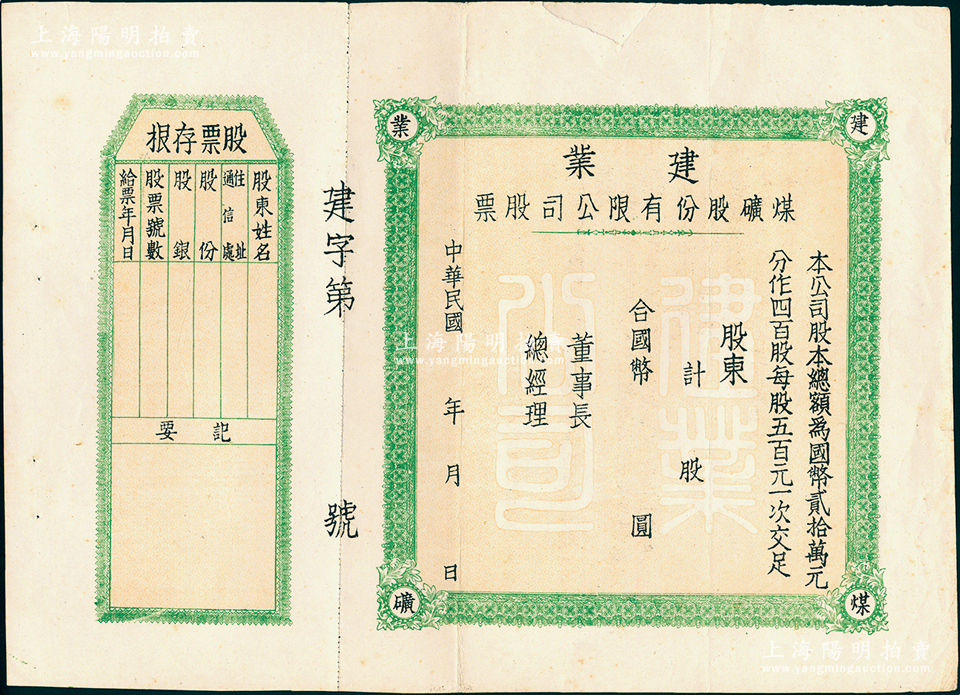 建業
煤礦股份有限公司股票
本公司股本總額為國幣貳拾萬元
分作四百股每股五百元一次交足
股東
計 股
合國幣 圓
董事長
總經理
中華民國 年 月 日
建
業
煤
礦
建業
公司
建字第 號
股票存根
股東姓名
住址
通信處
股份
股銀
股票號數
給票年月日
記要
上海陽明拍賣
www.yangmingauction.com
上海陽明拍賣
www.yangmingauction.com
上海陽明拍賣
www.yangmingauction.com